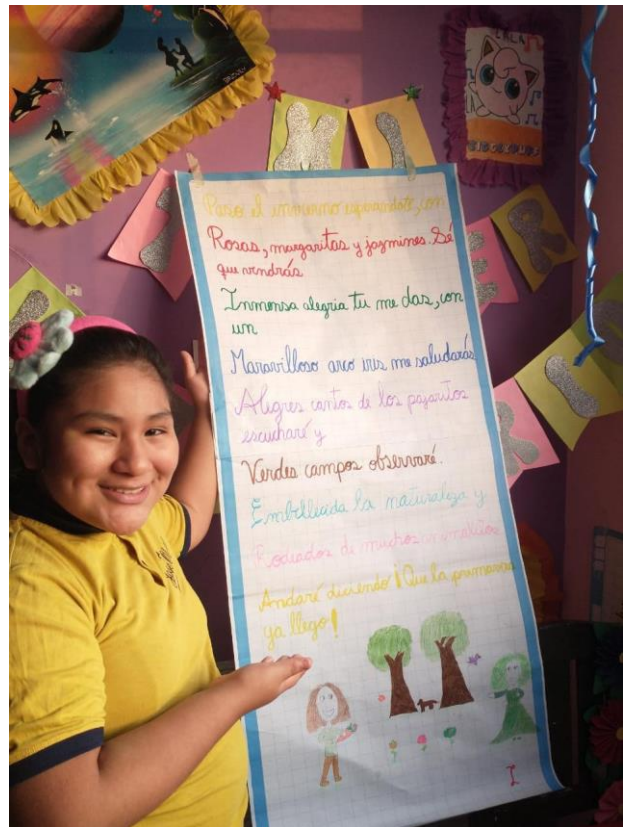 LALA
Paso el invierno esperandote, con
Rosas, margaritas y jazmines. Sé
que vendrás
Inmensa alegria tu me das, con
un
Maravilloso arco iris me saludarás
Alegres cantos de los pajaritos
escucharé y
Verdes campos observaré.
Embellecida la naturaleza y
Rodeados de muchos animalitos
Andaré diciendo ¡Que la primavera
ya llego!
I